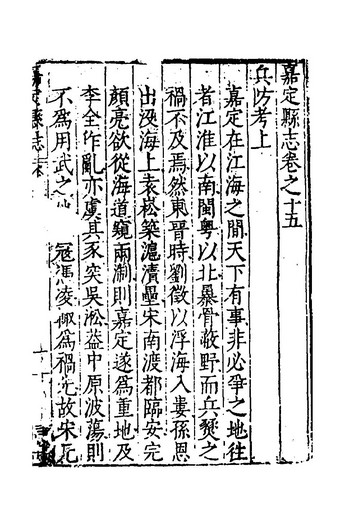 嘉定縣志卷之十五
兵防考上
嘉定在江海之間天下有事非必爭之地往
者江淮以南閩粤以北暴骨蔽野而兵燹之
禍不及焉然東晉時劉徵以浮海入婁孫恩
出没海上袁崧築滬瀆壘宋南渡都臨安完
顔亮欲從海道窺兩浙則嘉定遂爲重地及
李全作亂亦虞其豕突吳淞葢中原波蕩則
不爲用武之地 寇馮凌 爲禍尤故宋元
嘉定縣志